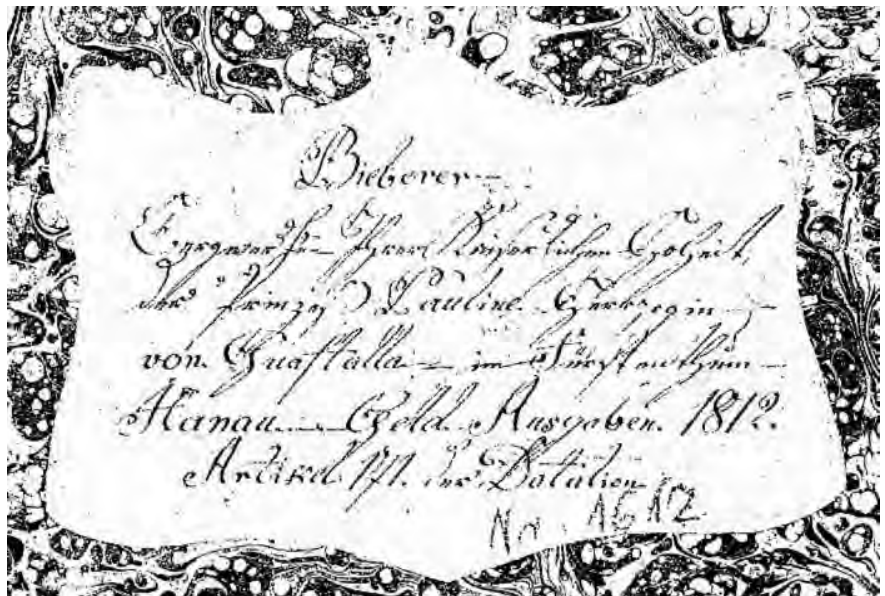 Bieberer
Bergwerke Ihrer Kaiserlichen Hoheit,
der Prinzeß Pauline Herzogin
von Guastalla im Fürstenthum
Hanau Geld Ausgaben. 1812.
Artikel 171. der Dotation
No. 1612